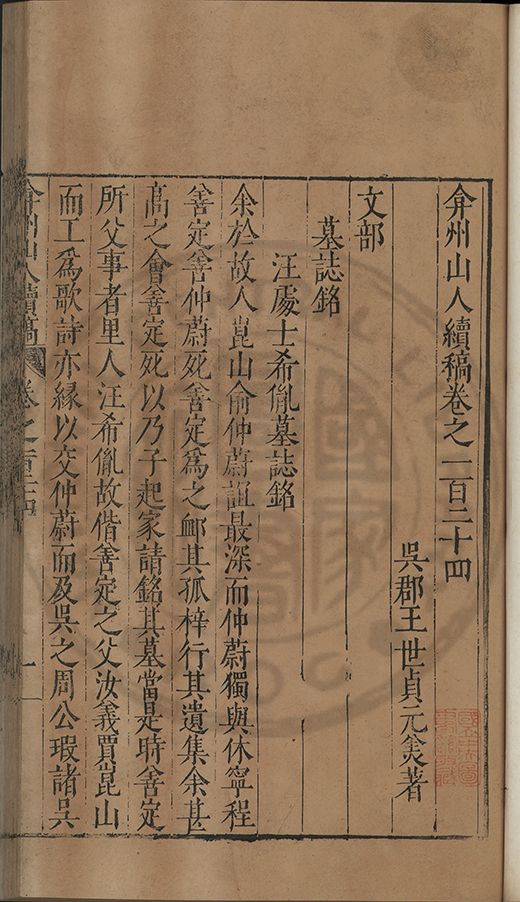 弇州山人續稿卷之一百二十四
吳郡王世貞元美著
文部
墓誌銘
汪處士希胤墓誌銘
余於故人崑山俞仲蔚誼最深而仲蔚獨與休寧程
善定善仲蔚死善定為之䘏其孤梓行其遺集余甚
高之會善定死以乃子起家請銘其墓當是時善定
所父事者里人汪希胤故偕善定之父汝義賈崑山
而工為歌詩亦緣以交仲蔚而及吳之周公瑕諸吳
弇州山人續稿 卷之一百二十四 一